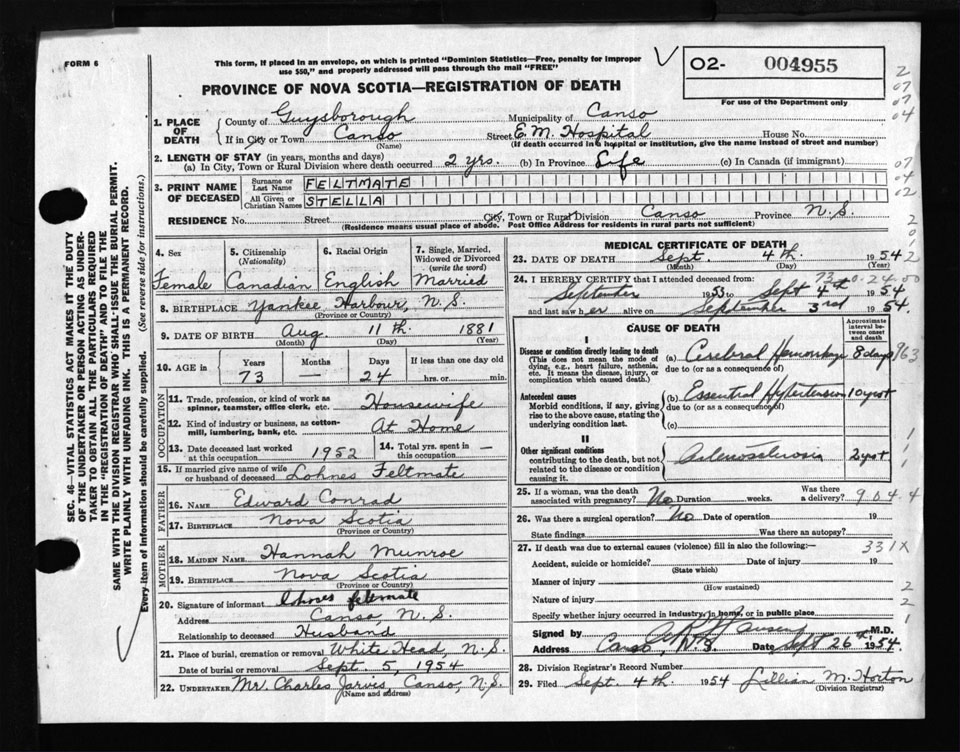 FORM 6
This form, if placed in an envelope, on which is printed "Dominion Statistics—Free, penalty for improper
use $50," and properly addressed will pass through the mail "FREE"
O2- 004955
For use of the Department only
PROVINCE OF NOVA SCOTIA—REGISTRATION OF DEATH
1. PLACE OF DEATH
County of Guysborough Municipality of Canso
If in City or Town Canso Street E.M. Hospital House No.
(Name) (If death occurred in a hospital or institution, give the name instead of street and number)
2. LENGTH OF STAY (in years, months and days)
(a) In City, Town or Rural Division where death occurred 2 yrs. (b) In Province Life (c) In Canada (if immigrant)
3. PRINT NAME OF DECEASED
Surname or Last Name FELTMATE
All Given or Christian Names STELLA
RESIDENCE No. Street City, Town or Rural Division Canso Province N.S.
(Residence means usual place of abode. Post Office Address for residents in rural parts not sufficient)
4. Sex 5. Citizenship (Nationality) 6. Racial Origin 7. Single, Married, Widowed or Divorced (write the word)
Female Canadian English Married
8. BIRTHPLACE Yankee Harbour, N.S.
(Province or Country)
9. DATE OF BIRTH Aug. 11th. 1881
(Month) (Day) (Year)
10. AGE in Years Months Days If less than one day old
73 — 24 hrs. or min.
OCCUPATION
11. Trade, profession, or kind of work as spinner, teamster, office clerk, etc. Housewife
12. Kind of industry or business, as cotton-mill, lumbering, bank, etc. At Home
13. Date deceased last worked at this occupation 1952 14. Total yrs. spent in this occupation —
15. If married give name of wife or husband of deceased Lohnes Feltmate
FATHER
16. NAME Edward Conrad
17. BIRTHPLACE Nova Scotia
(Province or Country)
MOTHER
18. MAIDEN NAME Hannah Munroe
19. BIRTHPLACE Nova Scotia
(Province or Country)
20. Signature of informant Lohnes feltmate
Address Canso, N.S.
Relationship to deceased Husband
21. Place of burial, cremation or removal White Head, N.S.
Date of burial or removal Sept. 5, 1954
22. UNDERTAKER Mr. Charles Jarvis, Canso, N.S.
(Name and address)
MEDICAL CERTIFICATE OF DEATH
23. DATE OF DEATH Sept. 4th. 1954
(Month) (Day) (Year)
24. I HEREBY CERTIFY that I attended deceased from:
September 1953 to Sept 4th 1954
and last saw her alive on September 3rd 1954.
CAUSE OF DEATH
Approximate interval between onset and death
I
Disease or condition directly leading to death
(This does not mean the mode of dying, e.g., heart failure, asthenia, etc. It means the disease, injury, or complication which caused death.)
(a) Cerebral Hemorrhage 8 days
due to (or as a consequence of)
Antecedent causes
Morbid conditions, if any, giving rise to the above cause, stating the underlying condition last.
(b) Essential Hypertension
due to (or as a consequence of)
(c)
II
Other significant conditions
contributing to the death, but not related to the disease or condition causing it.
25. If a woman, was the death associated with pregnancy? No Duration weeks. Was there a delivery? 904.4
26. Was there a surgical operation? No Date of operation 19
State findings Was there an autopsy?
27. If death was due to external causes (violence) fill in also the following:— 331X
Accident, suicide or homicide? Date of injury 19
(State which)
Manner of injury
(How sustained)
Nature of injury
Specify whether injury occurred in industry, in home, or in public place
Signed by M.D.
Address Canso, N.S. Date Sept 26th 1954.
28. Division Registrar's Record Number
29. Filed Sept. 4th. 1954 Lillian M. Horton
(Division Registrar)
SEC. 46—VITAL STATISTICS ACT MAKES IT THE DUTY
OF THE UNDERTAKER OR PERSON ACTING AS UNDER-
TAKER TO OBTAIN ALL THE PARTICULARS REQUIRED
IN THE "REGISTRATION OF DEATH" AND TO FILE THE
SAME WITH THE DIVISION REGISTRAR WHO SHALL ISSUE THE BURIAL PERMIT.
WRITE PLAINLY WITH UNFADING INK. THIS IS A PERMANENT RECORD.
Every item of Information should be carefully supplied. (See reverse side for instructions.)